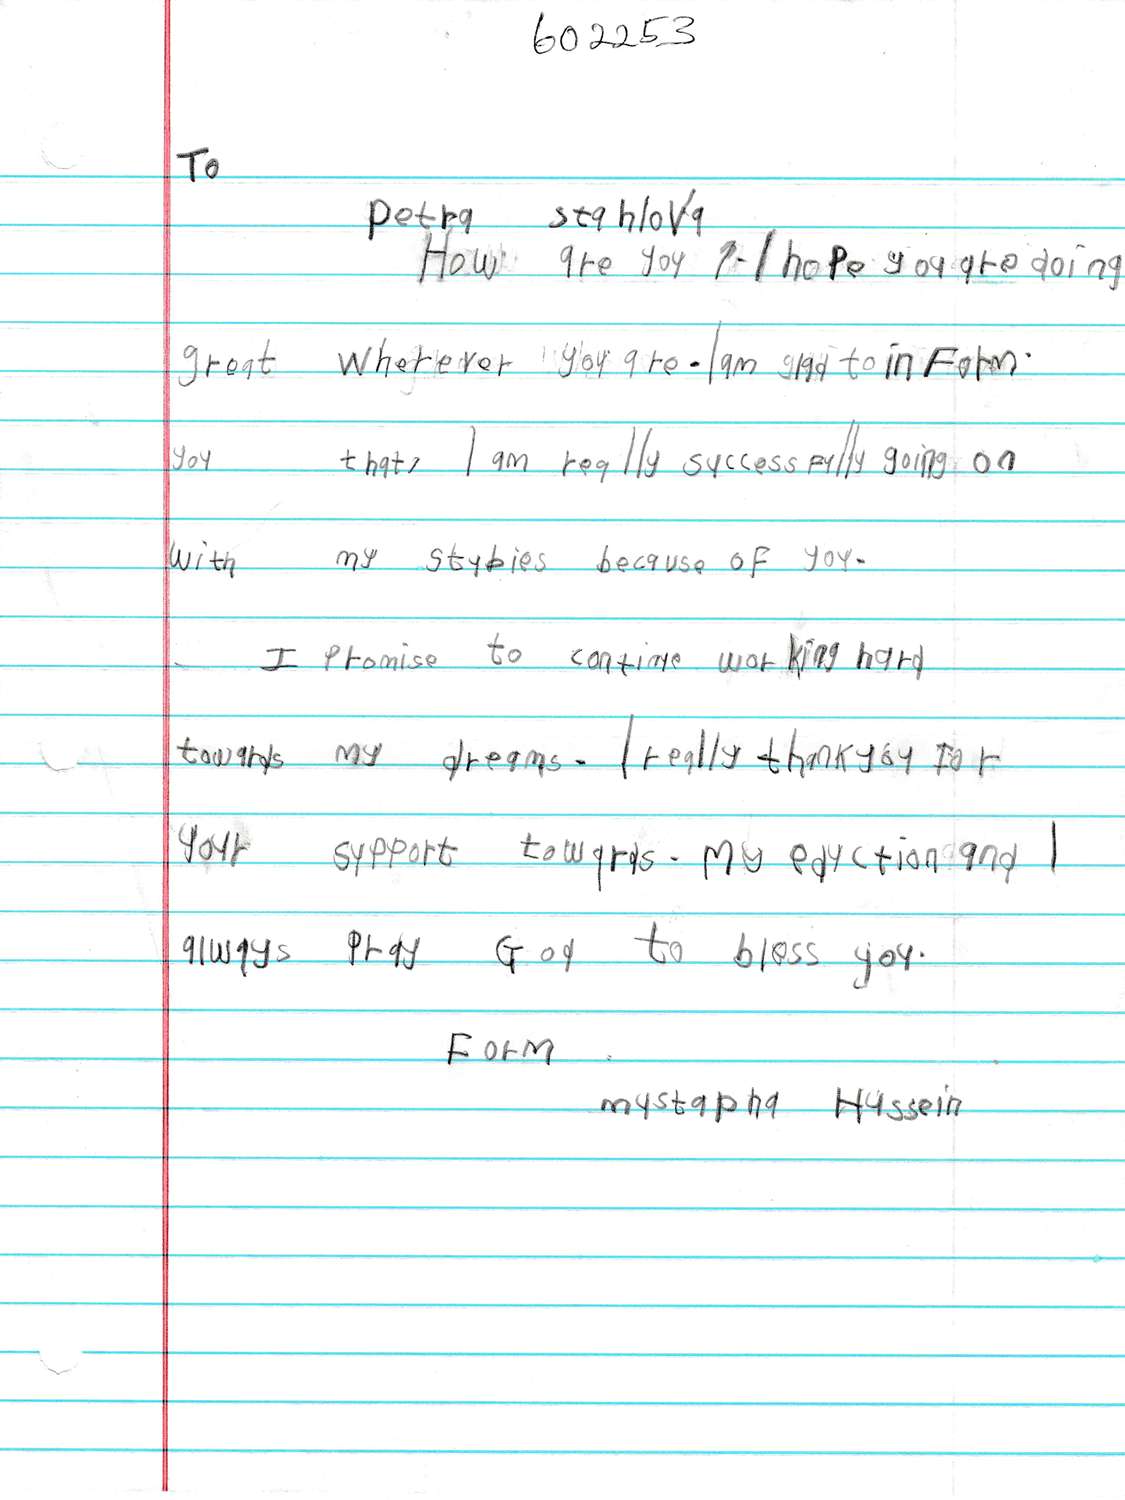 602253
To
Petra stahlova
How are you ? - I hope you are doing
great wherever you are - I am glad to inForm.
you that, I am really successfully going on
with my stubies because of you.
I promise to contine working hard
towards my dreams. I really thank you for
your support towards. my eduction and I
always pray God to bless you.
Form
mustapha Hussein